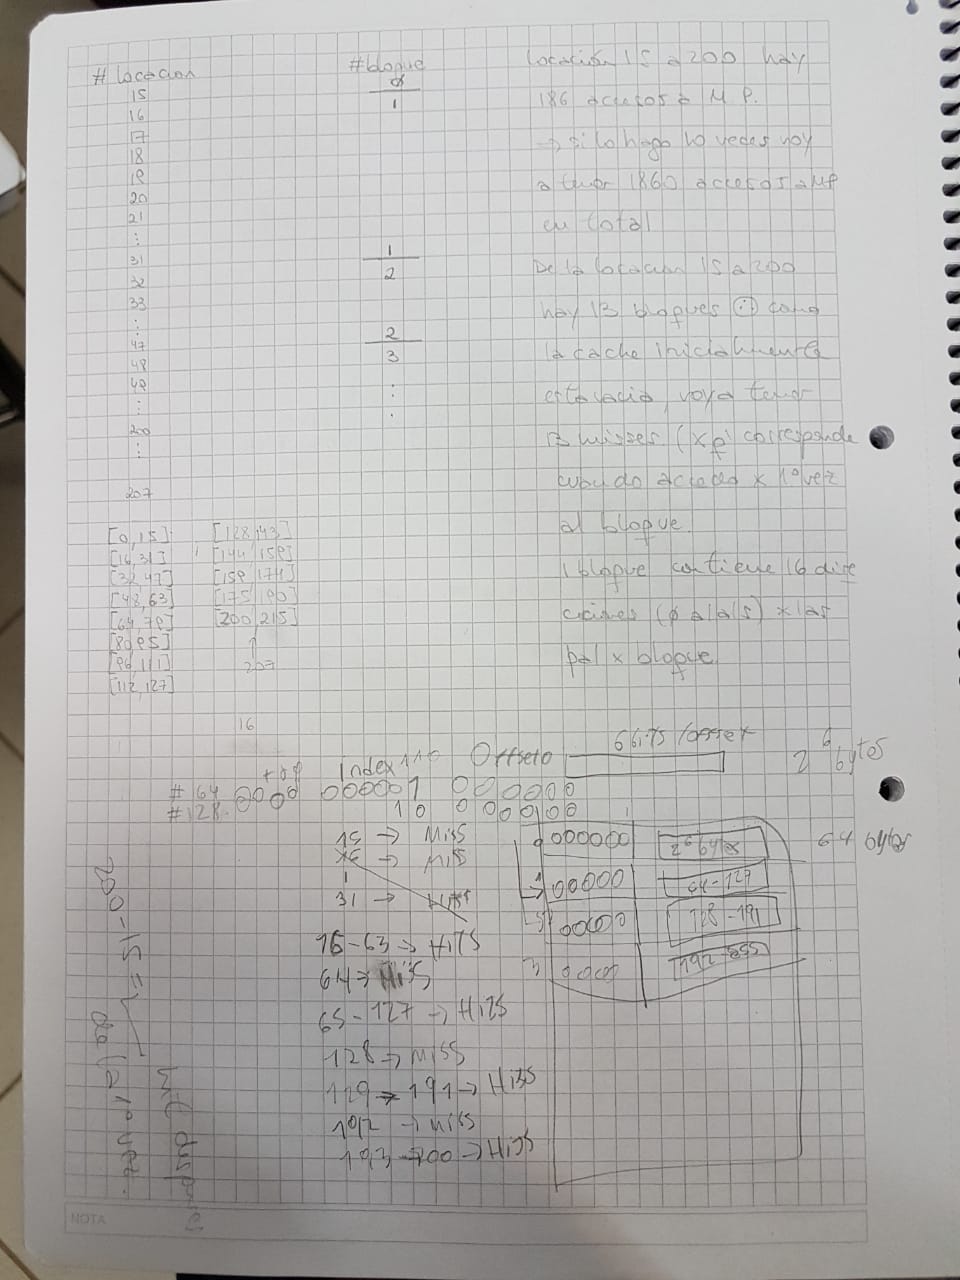 # locacion
15
16
17
18
19
20
21
:
31
32
33
:
47
48
49
:
200
:
207
#bloque
ø
1
1
2
2
3
:
.
locación 15 a 200 hay
186 accesos a M.P.
→ si lo hago 10 veces voy
a tener 1860 accesos a MP
en total
De la locacion 15 a 200
hay 13 bloques como
la cache inicialmente
esta vacia, voy a tener
13 misses (xq' corresponde
cuando accedes x 1° vez
al bloque.
1 bloque contiene 16 dire
cciones (ø a la 15) x las
pal x bloque
[0,15]
[16,31]
[32,47]
[48,63]
[64,79]
[80,95]
[96,111]
[112,127]
[128,143]
[144,159]
[159,174]
[175,190]
[200,215]
↑
207
16
6 bits /offset
2^6 bytes
Offset
#64
000001 000000
#128
10 000000
64 bytes
15 → Miss
31 →
16-63 → Hits
64 → Miss
65-127 → Hits
128 → Miss
129 → 191 → Hits
192 → miss
193-200 → Hits
64-127
128-191
200-15 =
NOTA